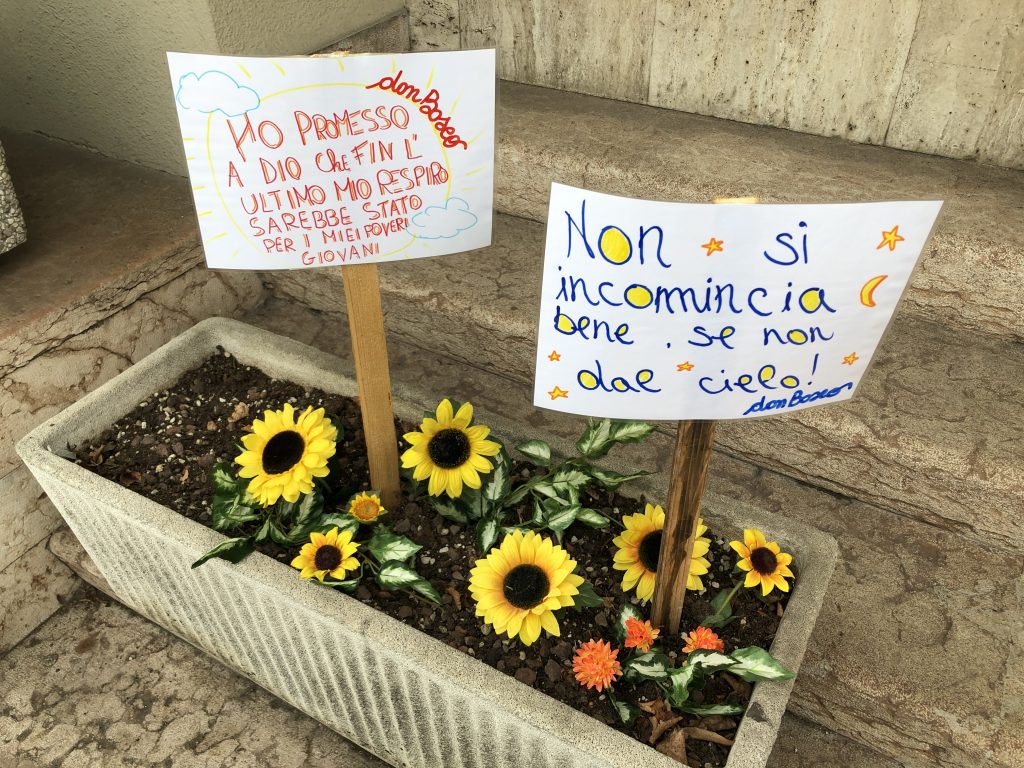 don Bosco
HO PROMESSO
A DIO CHE FIN L'
ULTIMO MIO RESPIRO
SAREBBE STATO
PER I MIEI POVERI
GIOVANI
Non si
incomincia
bene, se non
dal cielo!
don Bosco